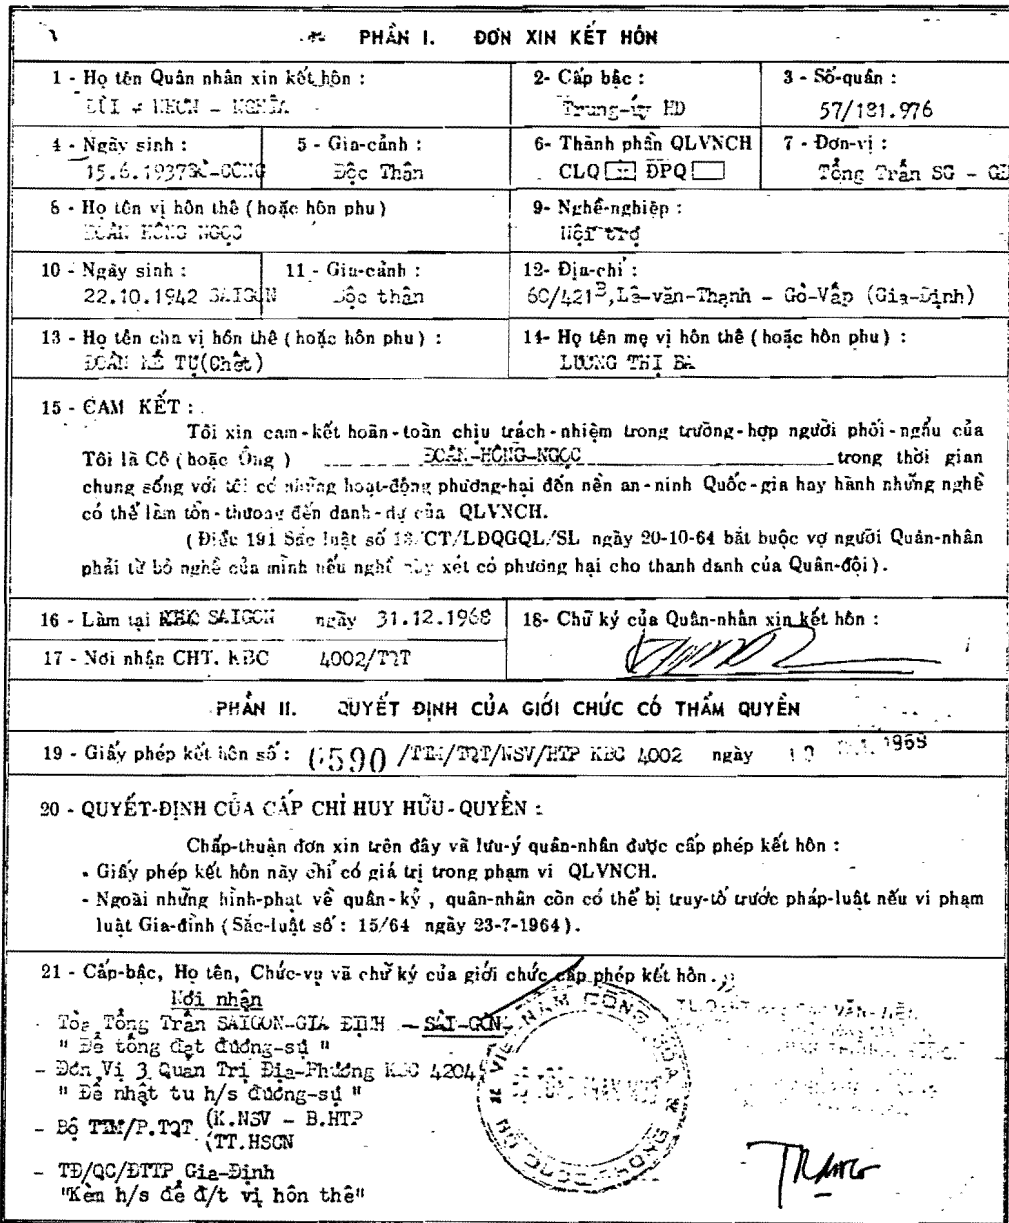 PHẦN I. ĐƠN XIN KẾT HÔN
1 - Họ tên Quân nhân xin kết hôn :
2- Cấp bậc :
3 - Số-quân :
NGHĨA
Trung-úy HD
57/181.976
4 - Ngày sinh :
5 - Gia-cảnh :
6- Thành phần QLVNCH
7 - Đơn-vị :
15.6.1937 GÒ-CÔNG
Độc Thân
CLQ ĐPQ
Tổng Trấn SG - GĐ
8 - Họ tên vị hôn thê (hoặc hôn phu)
9- Nghề-nghiệp :
ĐOÀN HỒNG NGỌC
Nội trợ
10 - Ngày sinh :
11 - Gia-cảnh :
12- Địa-chỉ :
22.10.1942 SAIGON
Độc thân
60/421B, Lê-văn-Thạnh - Gò-Vấp (Gia-Định)
13 - Họ tên cha vị hôn thê (hoặc hôn phu) :
14- Họ tên mẹ vị hôn thê (hoặc hôn phu) :
ĐOÀN KẾ TỰ(Chết)
LƯƠNG THỊ BA
15 - CAM KẾT :
Tôi xin cam-kết hoàn-toàn chịu trách-nhiệm trong trường-hợp người phối-ngẫu của
Tôi là Cô (hoặc Ông) ĐOÀN-HỒNG-NGỌC trong thời gian
chung sống với tôi có những hoạt-động phương-hại đến nền an-ninh Quốc-gia hay hành những nghề
có thể làm tổn-thương đến danh-dự của QLVNCH.
(Điều 191 Sắc luật số 13/CT/LĐQGQL/SL ngày 20-10-64 bắt buộc vợ người Quân-nhân
phải từ bỏ nghề của mình nếu nghề này xét có phương hại cho thanh danh của Quân-đội).
16 - Làm tại KBC SAIGON ngày 31.12.1968
18- Chữ ký của Quân-nhân xin kết hôn :
17 - Nơi nhận CHT. KBC 4002/TQT
PHẦN II. QUYẾT ĐỊNH CỦA GIỚI CHỨC CÓ THẨM QUYỀN
19 - Giấy phép kết hôn số : 6590 /TTM/TQT/NSV/HTP KBC 4002 ngày
20 - QUYẾT-ĐỊNH CỦA CẤP CHỈ HUY HỮU-QUYỀN :
Chấp-thuận đơn xin trên đây và lưu-ý quân-nhân được cấp phép kết hôn :
- Giấy phép kết hôn này chỉ có giá trị trong phạm vi QLVNCH.
- Ngoài những hình-phạt về quân-kỷ, quân-nhân còn có thể bị truy-tố trước pháp-luật nếu vi phạm
luật Gia-đình (Sắc-luật số : 15/64 ngày 23-7-1964).
21 - Cấp-bậc, Họ tên, Chức-vụ và chữ ký của giới chức cấp phép kết hôn.
Nơi nhận
- Tòa Tổng Trấn SAIGON-GIA ĐỊNH - SÀI-GÒN
" Để tống đạt đương-sự "
- Đơn Vị 3 Quản Trị Địa-Phương KBC 4204
" Để nhật tu h/s đương-sự "
- Bộ TTM/P.TQT (K.NSV - B.HTP
(TT.HSCN
- TĐ/QC/ĐTTP Gia-Định
"Kèm h/s để đ/t vị hôn thê"
VIỆT-NAM CỘNG HÒA